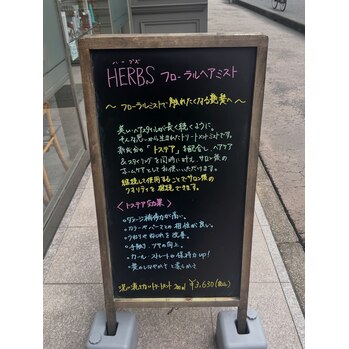 ハーブス
HERBS フローラルヘアミスト
〜 フローラルミストで触れたくなる艶髪へ 〜
美しいヘアスタイルが長く続くように。
そんな思いから生まれたトリートメントミストです。
新成分の「トステア」を配合し、ヘアケア
&スタイリングを同時に叶え、サロン後の
ホームケアとしてお使いいただけます。
継続して使用することでサロン後の
クオリティを継続できます。
〈トステア効果〉
・ダメージ補修力が高い。
・カラー・パーマとの相性が良い。
・うねりやねじれを改善。
・手触り、ツヤの向上。
・カール・ストレートの保持力up!
・髪のしなやかさと柔らかさ
洗い流さないトリートメント 200ml ¥3,630(税込)